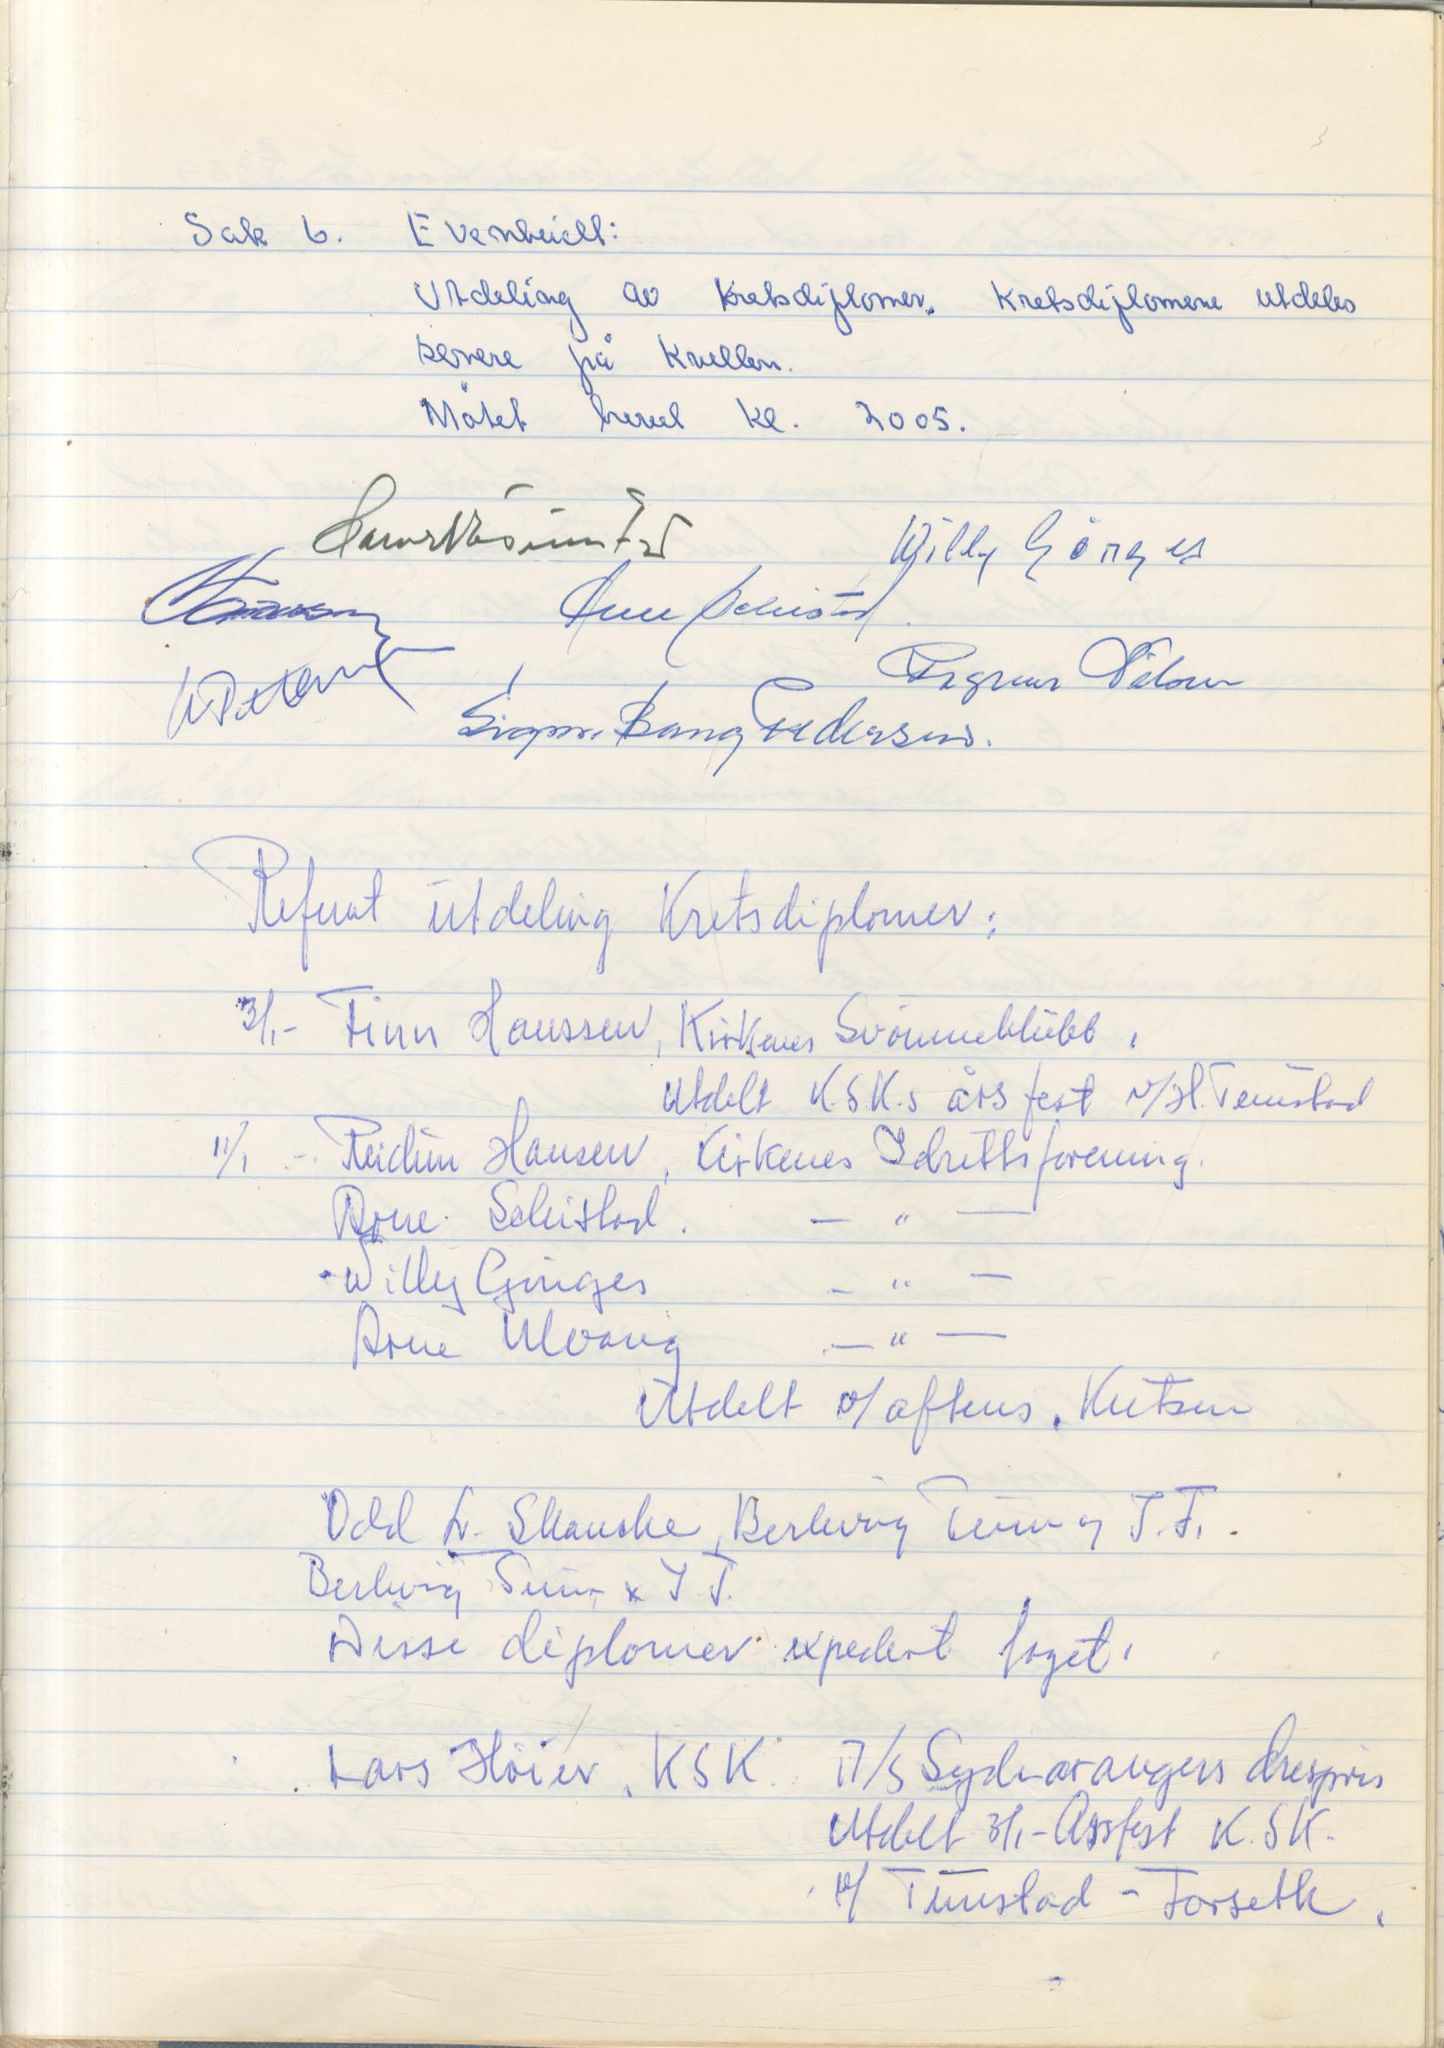 Sak 6. Eventuellt:
Utdeling av Kretsdiplomer. Kretsdiplomene utdeles
senere på kvelden.
Møtet hevet kl. 2005.
Willy Görges
Arne Schistad
Ragnar
Sigm. Bang Pedersen.
Referat utdeling Kretsdiplomer:
3/1- Finn Hanssen, Kirkenes Svömmeklubb.
Utdelt K.S.K.s årsfest v/H. Tunstad
11/1 - Reidun Hansen, Kirkenes Idrettsforening.
Arne Schistad. — " —
Willy Görges — " —
Arne Ulvang — " —
Utdelt v/aftens. Knutsen
Odd L. Skanche, Berlevåg Turn og I.F.
Berlevåg Turn x I F.
Disse diplomer expedert toget.
Lars Höier, KSK. A/S Sydvarangers krespris
Utdelt 3/1- Årsfest K.S.K.
v/ Tunstad - Forseth.